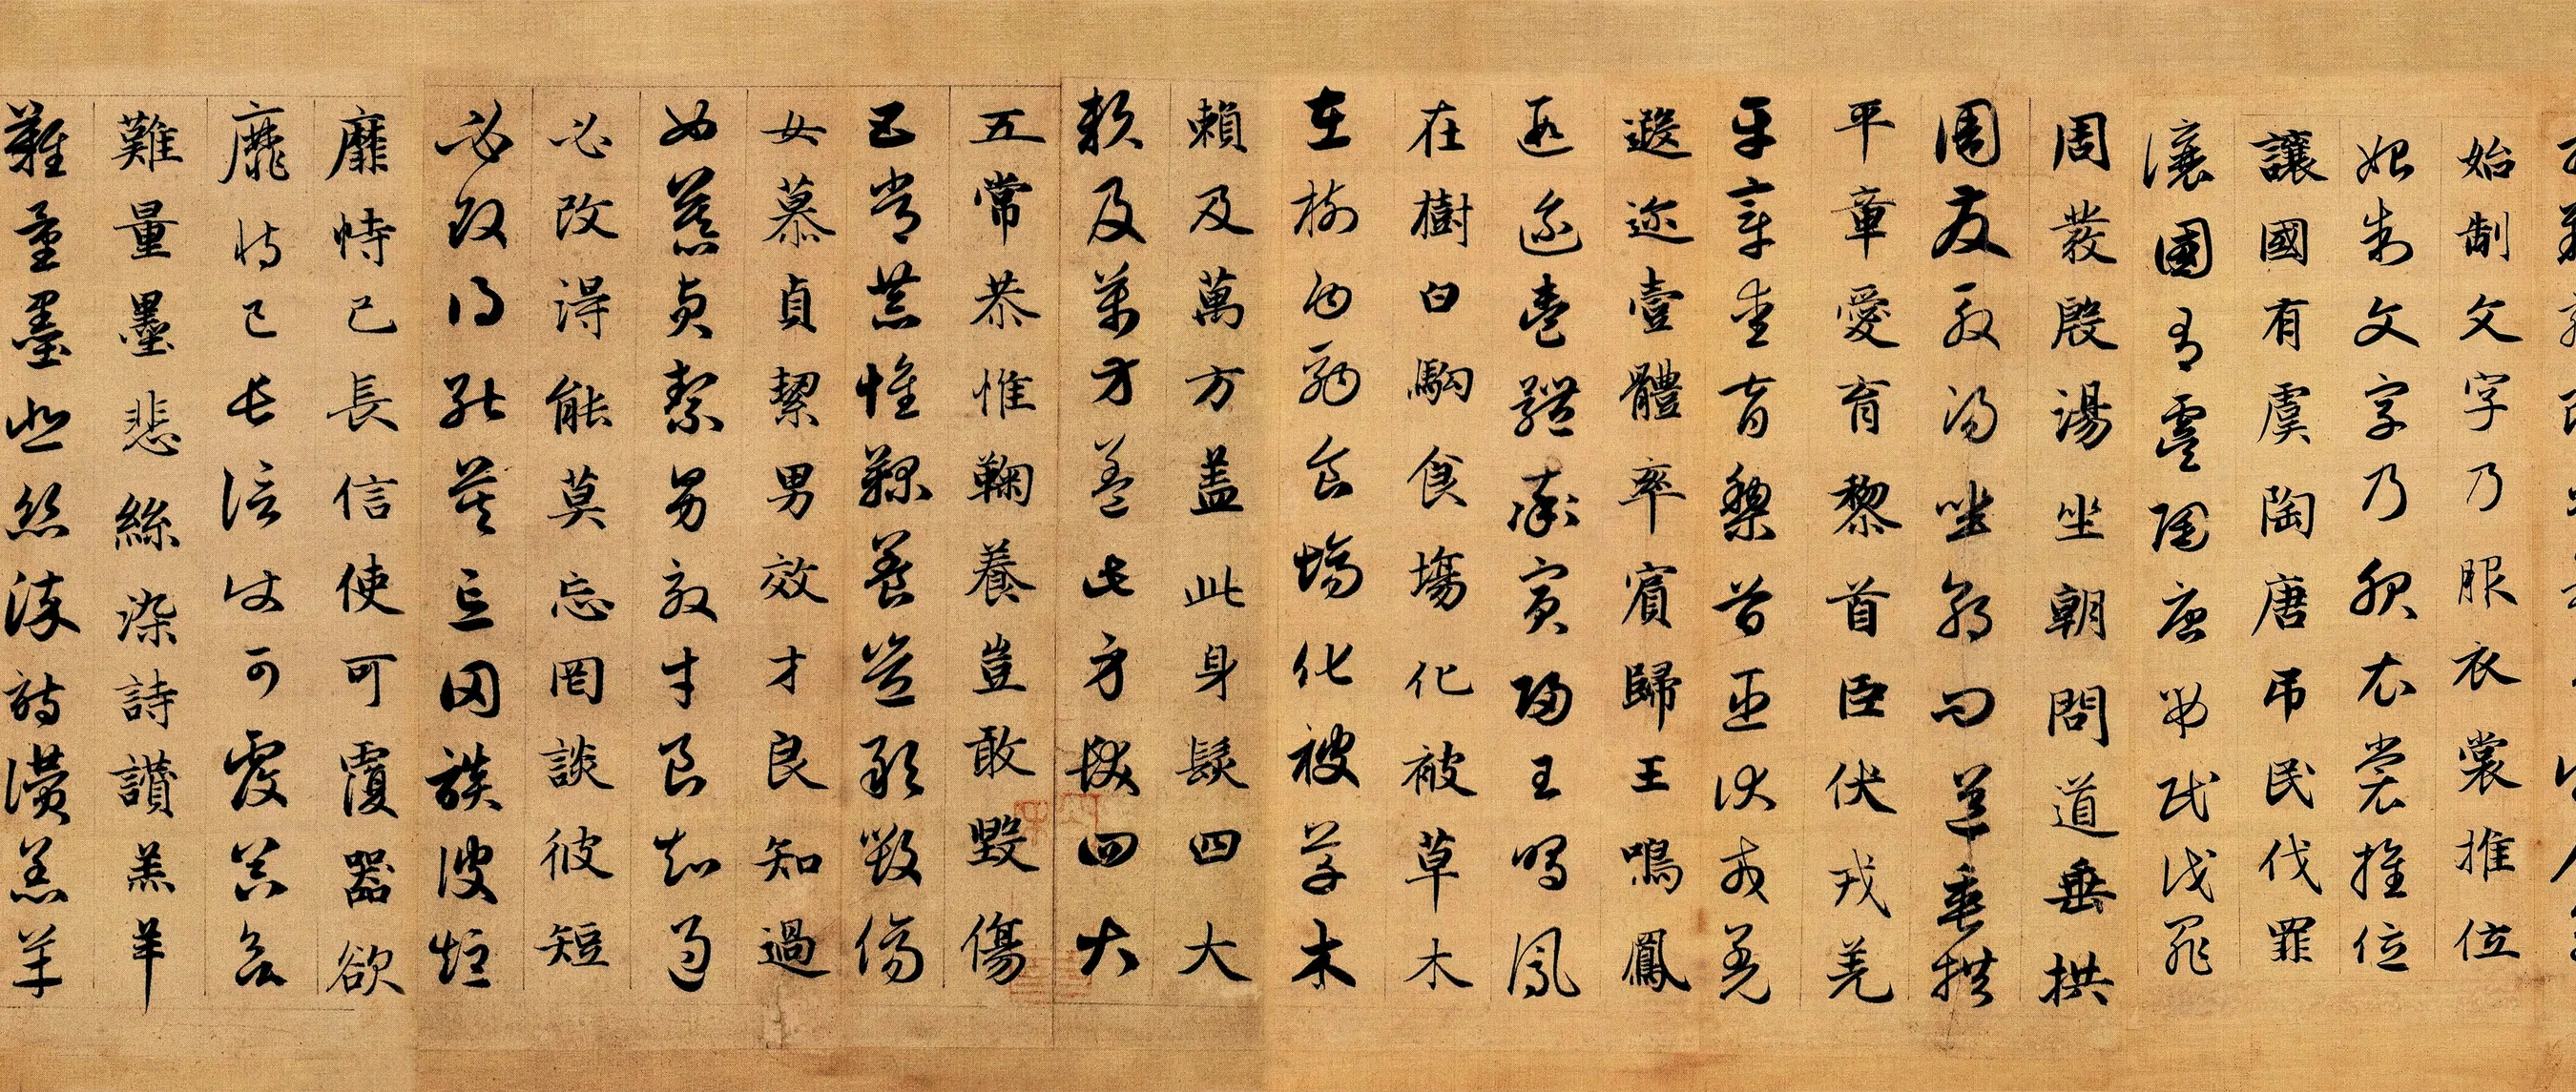 始制文字乃服衣裳推位
始制文字乃服衣裳推位
讓國有虞陶唐吊民伐罪
讓國有虞陶唐吊民伐罪
周發殷湯坐朝問道垂拱
周發殷湯坐朝問道垂拱
平章愛育黎首臣伏戎羌
平章愛育黎首臣伏戎羌
遐迩壹體率賓歸王鳴鳳
遐迩壹體率賓歸王鳴鳳
在樹白駒食塲化被草木
在樹白駒食塲化被草木
賴及萬方盖此身髮四大
賴及萬方盖此身髮四大
五常恭惟鞠養豈敢毀傷
五常恭惟鞠養豈敢毀傷
女慕貞絜男效才良知過
女慕貞絜男效才良知過
必改得能莫忘罔談彼短
必改得能莫忘罔談彼短
靡恃己長信使可覆器欲
靡恃己長信使可覆器欲
難量墨悲絲染詩讚羔羊
難量墨悲絲染詩讚羔羊